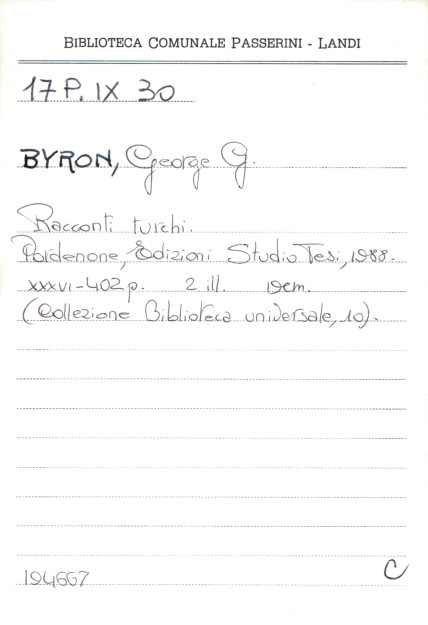 BIBLIOTECA COMUNALE PASSERINI - LANDI
17 P. IX 30
BYRON, George G.
Racconti turchi.
Pordenone, Edizioni Studio Tesi, 1988.
XXXVI-402 p. 2 ill. 19cm.
(Collezione Biblioteca universale, 10).
194667
C